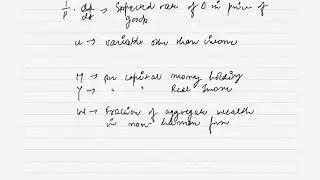 1/P . dP/dt → Expected rate of Δ in price of
goods
u → variable other than income
M → Per capital money holding
Y → " " Real Income
W → Fraction of aggregate wealth
in non-human form